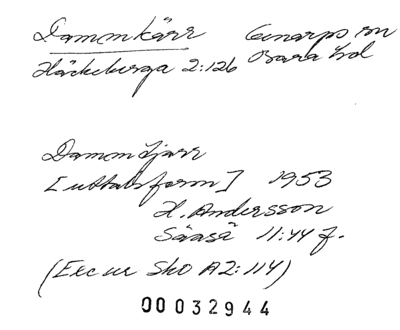 Dammkärr Genarps sn
Häckeberga 2:126 Bara hd
Dammtjärr
[uttalsform] 1953
H. Andersson
11:44 f.
(Exc ur Sko A2:114)
00032944